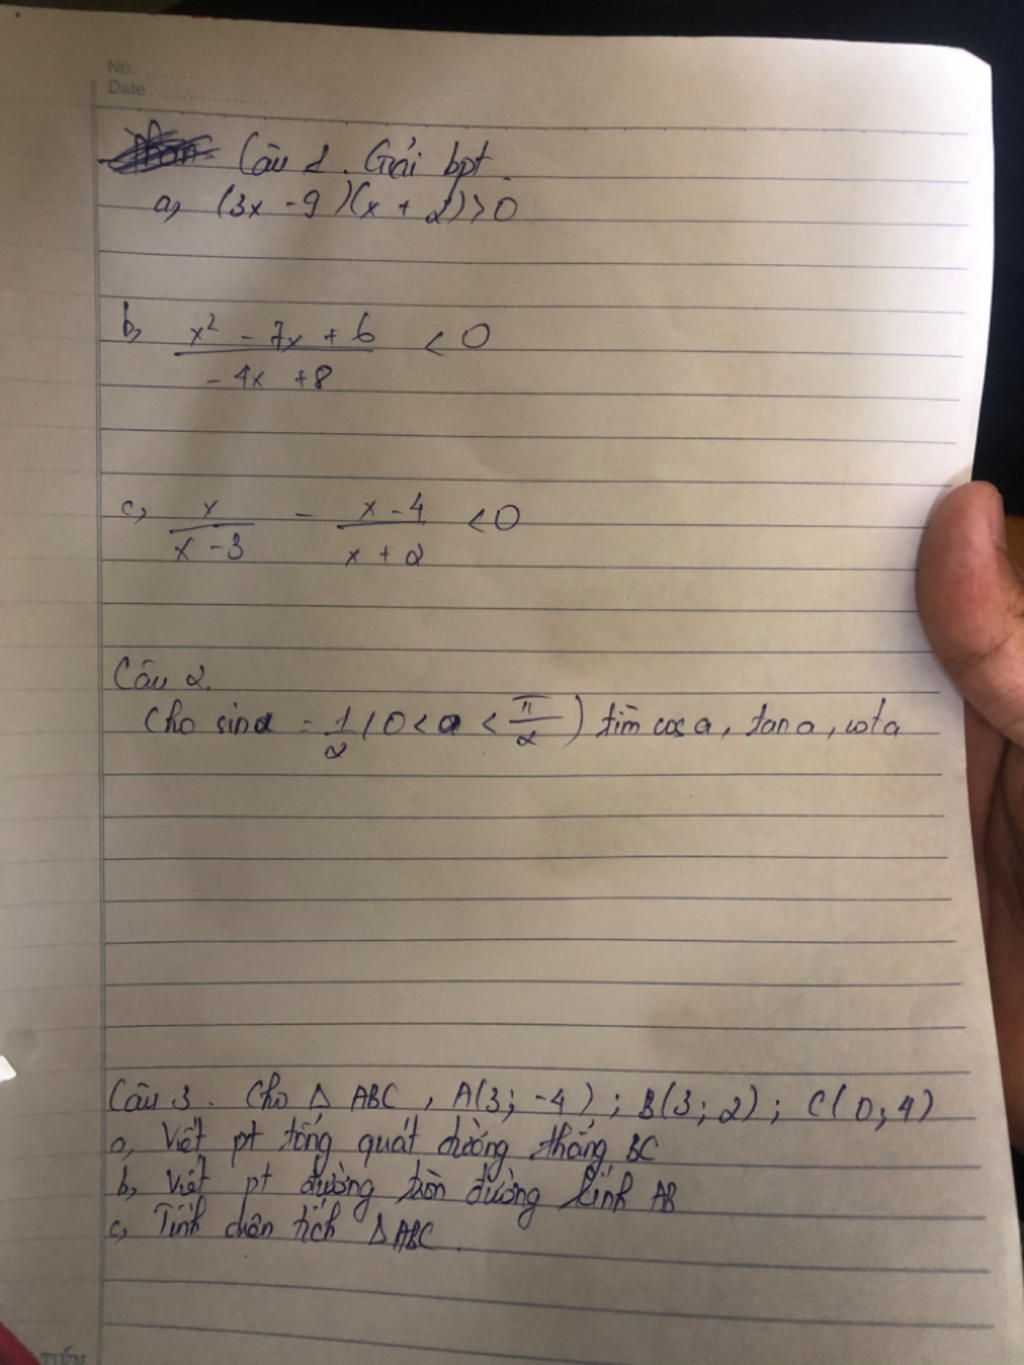 No. .........
Date ...................
Câu 1. Giải bpt.
a, (3x - 9)(x + 2) > 0
b, x² - 7x + 6 < 0
- 4x + 8
c, x - x - 4 < 0
x - 3 x + 2
Câu 2.
Cho sin α = 1/2 (0 < a < π/2) tìm cos a, tan a, cot a
Câu 3. Cho Δ ABC, A(3; -4); B(3; 2); C(0; 4)
a, Viết pt tổng quát đường thẳng BC
b, Viết pt đường tròn đường kính AB
c, Tính diện tích Δ ABC.
TIẾN